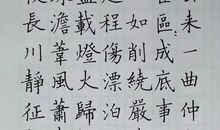 來一曲仲
區:成底事
如削繞嚴
程傷漂泊
載燈火歸
澹葦風蕭
長川靜征